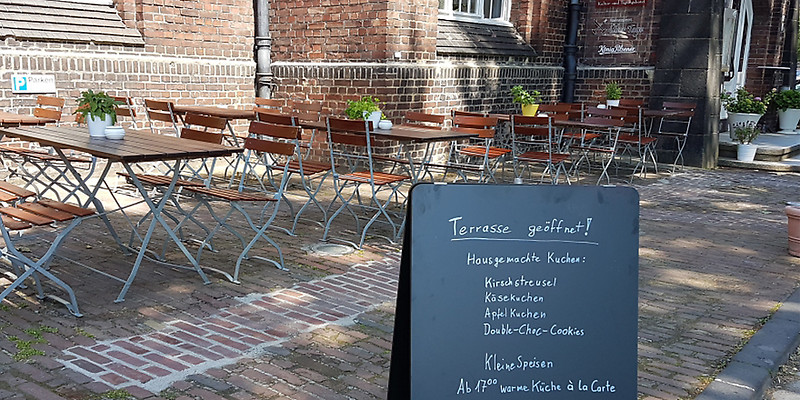 P Parken
König Pilsener
Terrasse geöffnet!
Hausgemachte Kuchen:
Kirschstreusel
Käsekuchen
Apfelkuchen
Double-Choc-Cookies
Kleine Speisen
Ab 17⁰⁰ warme Küche à la Carte